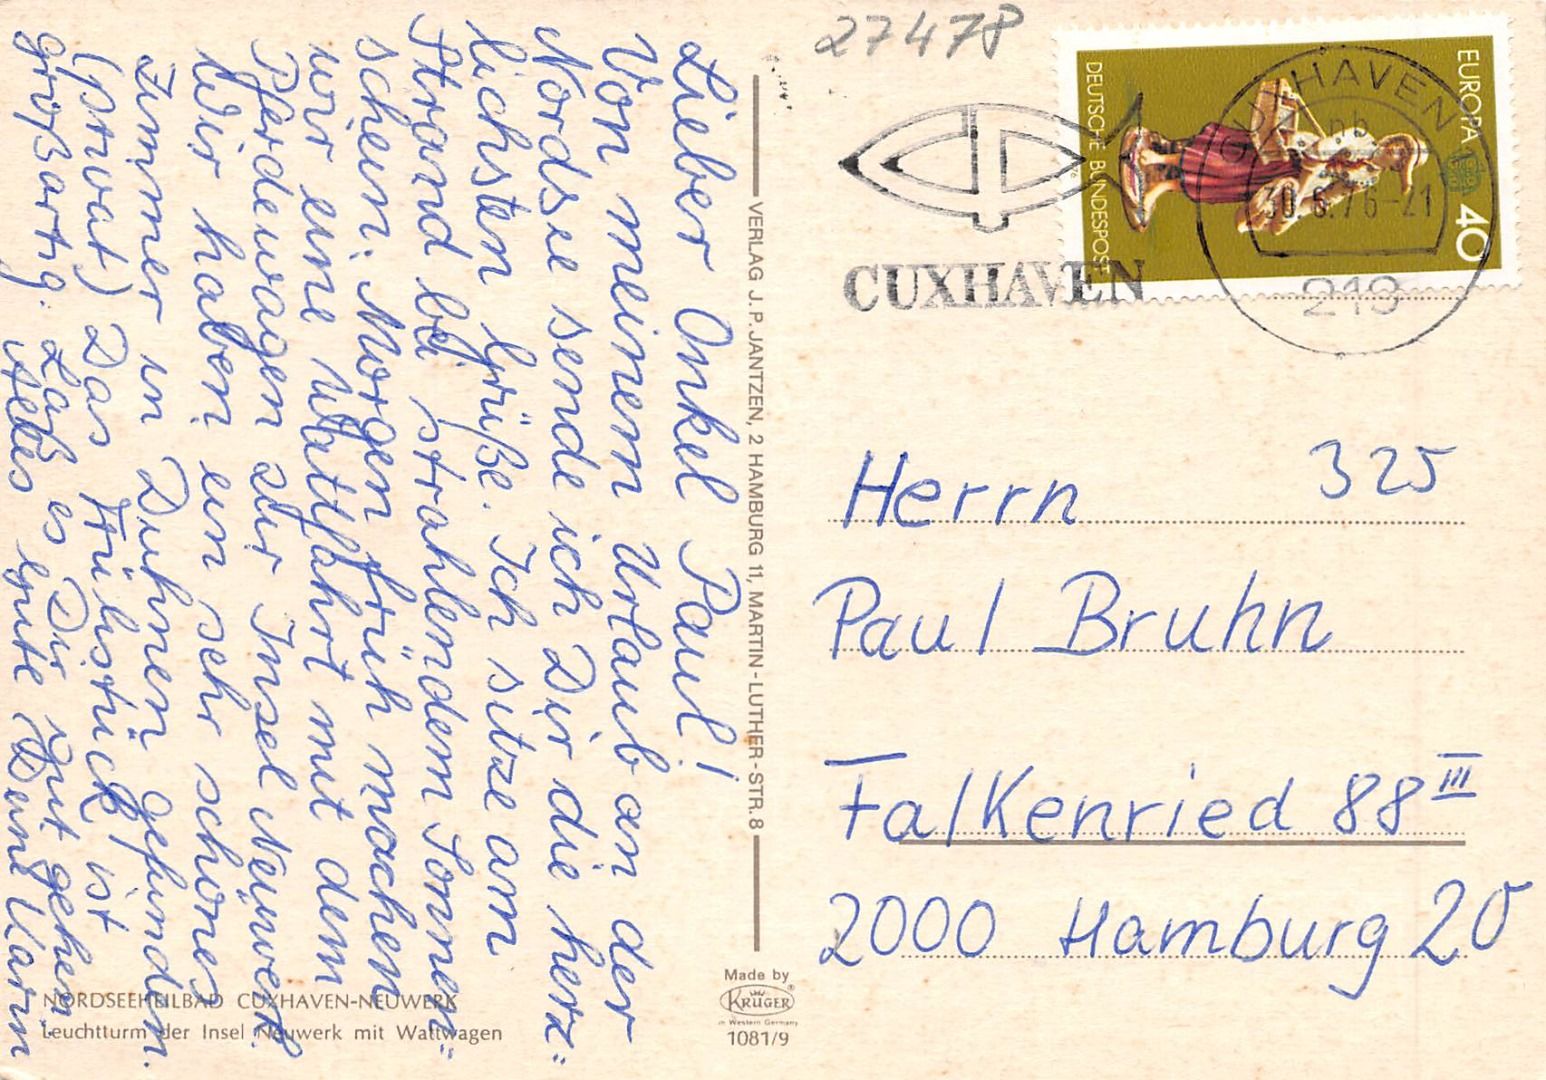 Lieber Onkel Paul!
Von meinem Urlaub an der
Nordsee sende ich Dir die herz=
lichsten Grüße. Ich sitze am
Strand bei strahlendem Sonnen=
schein. Morgen früh machen
wir eine Wattfahrt mit dem
Pferdewagen zur Insel Neuwerk.
Wir haben ein sehr schönes
Zimmer in Duhnen gefunden.
(privat) Das Frühstück ist
großartig. Laß es Dir gut gehen
Alles Gute Dein Karin
NORDSEEHEILBAD CUXHAVEN-NEUWERK
Leuchtturm der Insel Neuwerk mit Wattwagen
VERLAG J. P. JANTZEN, 2 HAMBURG 11, MARTIN-LUTHER-STR. 8
Made by
KRÜGER
in Western Germany
1081/9
27478
EUROPA 40
DEUTSCHE BUNDESPOST
CUXHAVEN
30.6.76-21
219
CUXHAVEN
325
Herrn
Paul Bruhn
Falkenried 88 III
2000 Hamburg 20